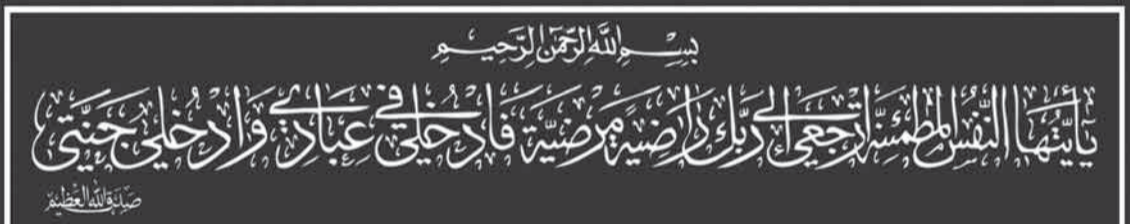 بِسْمِ اللَّهِ الرَّحْمَنِ الرَّحِيمِ
يَا أَيَّتُهَا النَّفْسُ الْمُطْمَئِنَّةُ ارْجِعِي إِلَى رَبِّكِ رَاضِيَةً مَرْضِيَّةً فَادْخُلِي فِي عِبَادِي وَادْخُلِي جَنَّتِي
صدق الله العظيم